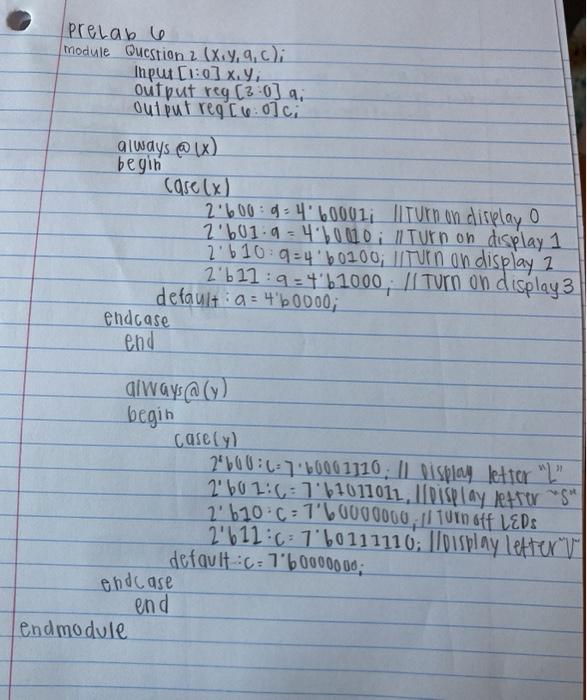 PreLab 6
module Question 2 (x,y,a,c);
input [1:0] x,y;
output reg [3:0] a;
output reg [6:0] c;
always @ (x)
begin
case(x)
2'b00 : a = 4'b0001; //Turn on display 0
2'b01 : a = 4'b0010; // Turn on display 1
2'b10 : a = 4'b0100; //Turn on display 2
2'b11 : a = 4'b1000; // Turn on display 3
default : a = 4'b0000;
endcase
end
always @ (y)
begin
case(y)
2'b00 : c = 7'b0001110; // Display letter "L"
2'b01 : c = 7'b1011011; //Display letter "S"
2'b10 : c = 7'b0000000; // Turn off LEDs
2'b11 : c = 7'b0111110; //Display letter "V"
default : c = 7'b0000000;
endcase
end
endmodule